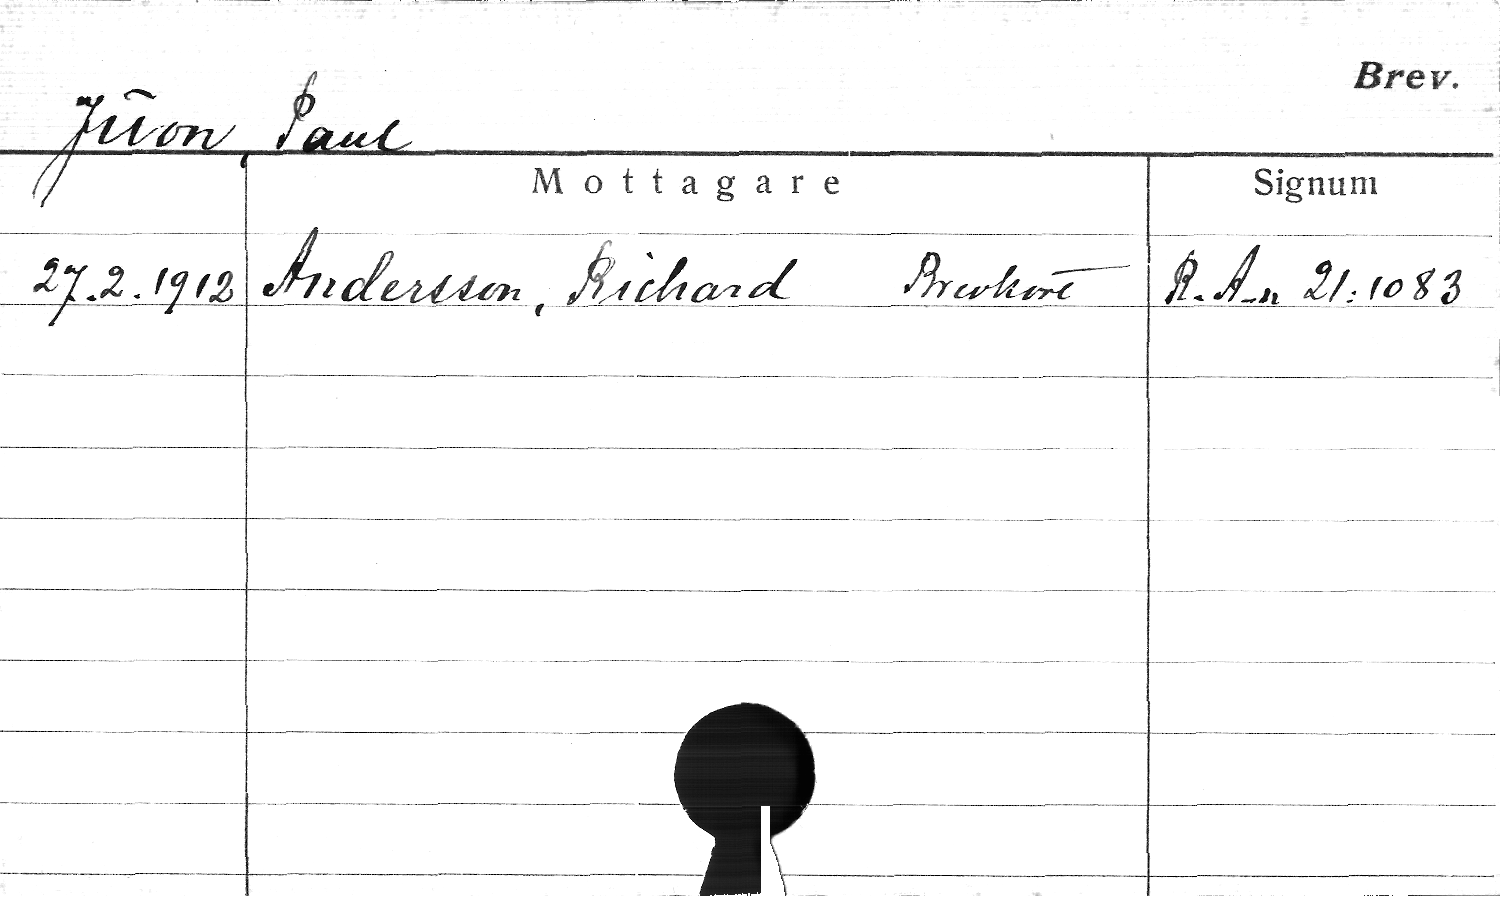 Brev.
Jüon, Paul
Mottagare Signum
27.2.1912 Andersson, Richard Brevkort R. A-n 21:1083